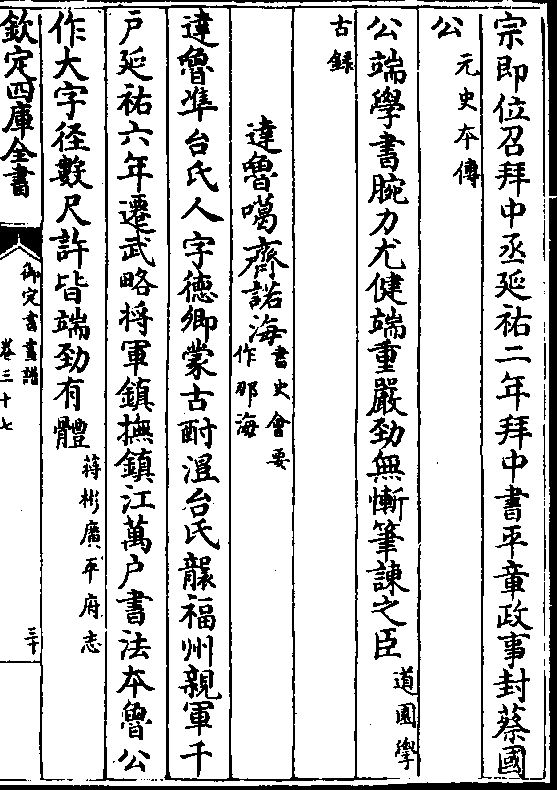 宗即位召拜中丞延祐二年拜中書平章政事封蔡國
公元史本傳
公端學書腕力尤健端重嚴勁無慚筆諫之臣道園學
古録
達魯噶齊諾海書史會要作那海
達魯準台氏人字德卿蒙古酎温台氏襲福州親軍千
戸延祐六年遷武略将軍鎮撫鎮江萬戸書法本魯公
作大字徑數尺許皆端勁有體蒋彬廣平府志
欽定四庫全書
御定書畫譜
卷三十七
三十